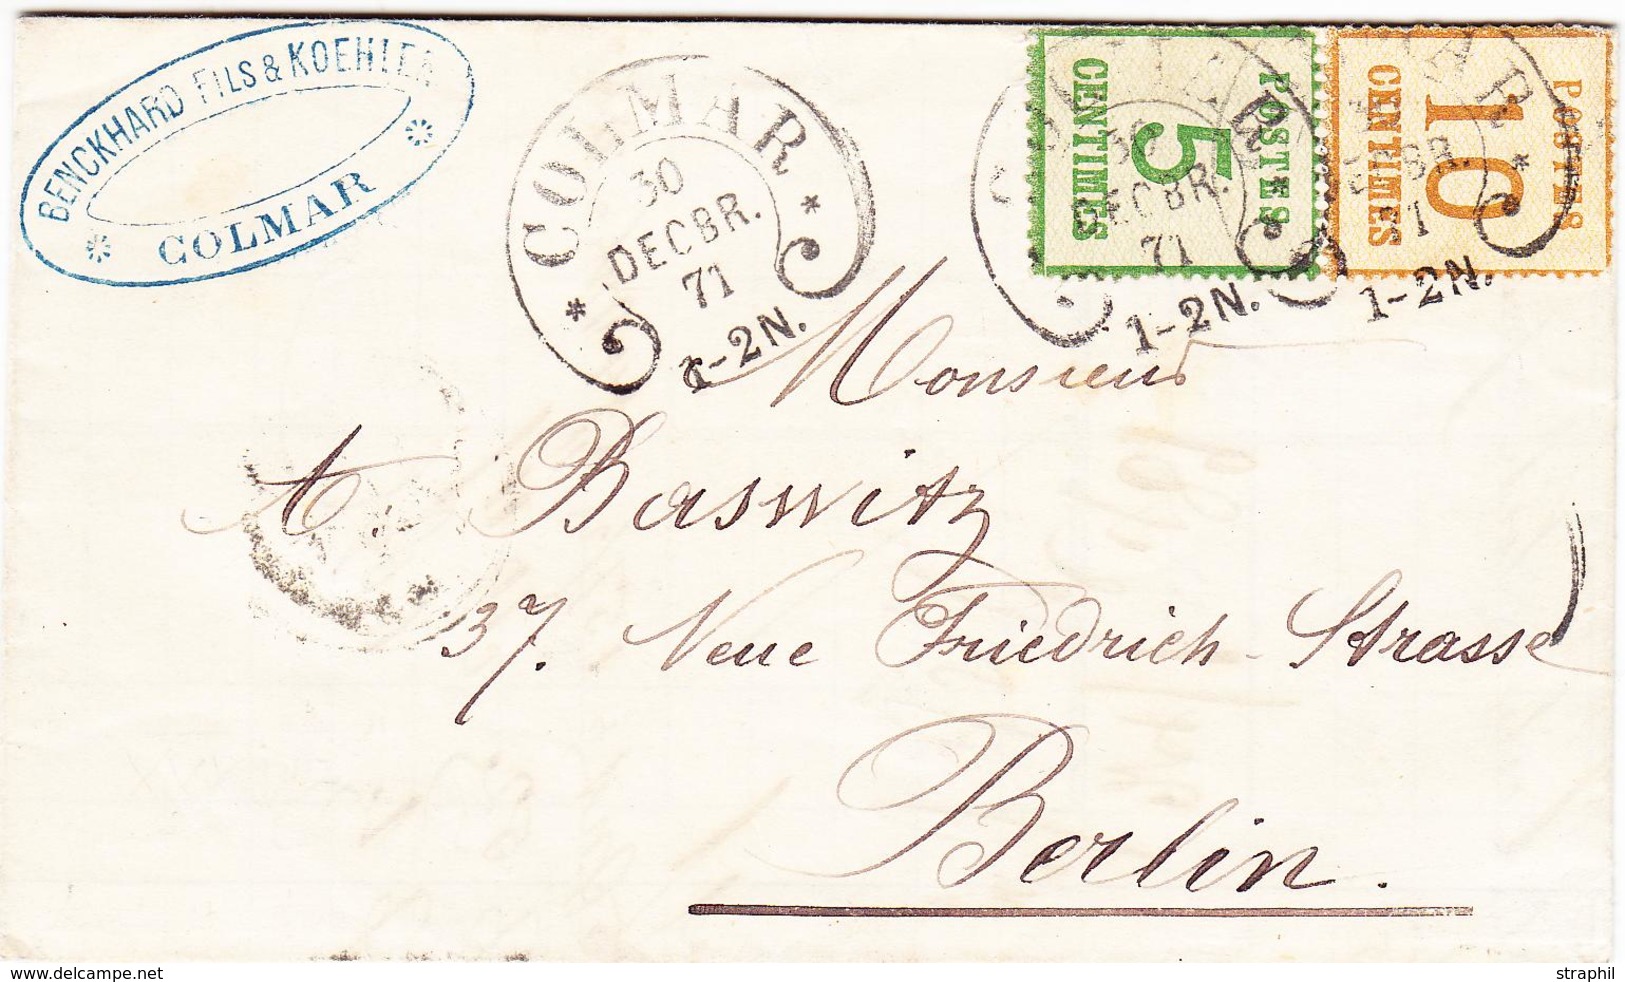 BENCKHARD FILS & KOEHLER
COLMAR
COLMAR
30
DECBR.
71
1-2N.
POSTES
5
CENTIMES
30
DECBR.
71
1-2N.
POSTES
10
CENTIMES
1-2N.
Monsieur
A. Baswitz
37. Neue Friedrich-Strasse
Berlin.
www.delcampe.net
straphil